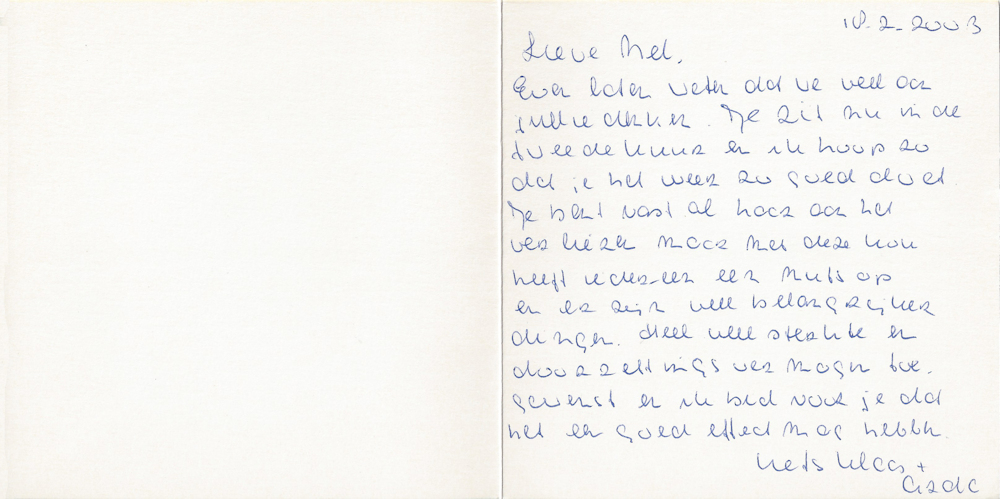 18-2-2003
Lieve Mel,
Even laten weten dat we veel aan
jullie denken. Je zit nu in de
tweede kuur en ik hoop zo
dat je het weer zo goed doet.
Je bent vast al haar aan het
verliezen maar met deze kou
heeft iedereen een muts op
en er zijn veel belangrijker
dingen. Heel veel sterkte en
doorzettingsvermogen toe-
gewenst en ik bid voor je dat
het een goed effect mag hebben.
liefs Klaas +